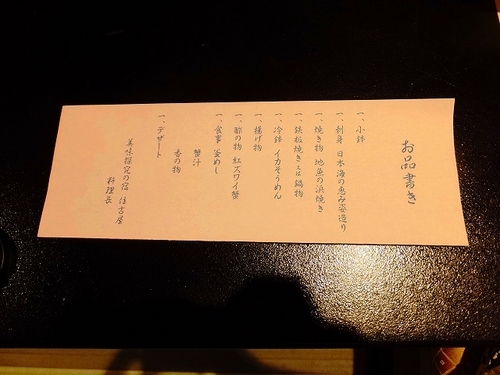 お品書き
一、小鉢
一、刺身 日本海の恵み姿造り
一、焼き物 地魚の浜焼き
一、鉄板焼き又は鍋物
一、冷鉢 イカそうめん
一、揚げ物
一、酢の物 紅ズワイ蟹
一、食事 釜めし
蟹汁
香の物
一、デザート
美味探究の宿 住吉屋
料理長